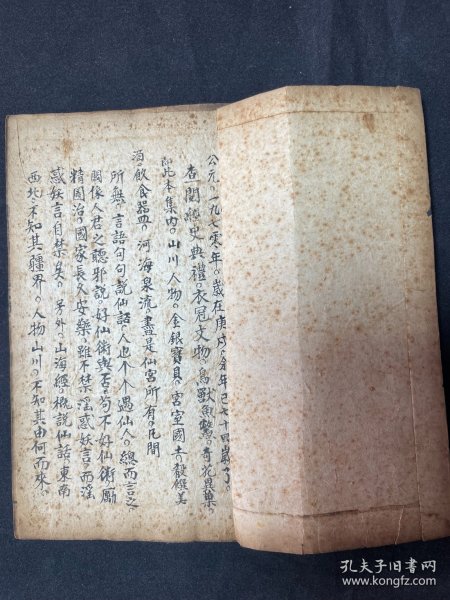 公元。一九七零年。歲在庚戌。余年已七十四歲了。
查閱純史典禮。衣冠文物。鳥獸魚鱉。奇花異菓。
即此本集内。山川人物。金銀寶貝。宮室國土。殽饌美
酒。飲食器皿。河海泉流。盡是仙宮所有。凡間
所無。言語句句説仙話。人也个个遇仙人。總而言之。
國係人君之聽邪説。好仙術與否。苟不好仙術。勵
精圖治。國家長久安樂。雖不禁淫惑妖言。而淫
惑妖言自禁矣。另外。山海經。概説仙話。東南
西北。不知其疆界。人物山川。不知其由何而來。
孔夫子旧书网
www.kongfz.com